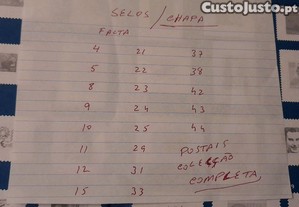 CustoJusto.pt
SELOS / CHAPA
FALTA
4 21 37
5 22 38
8 23 42
9 24 43
10 25 44
11 29 POSTAIS
12 31 COLEÇÃO
15 33 COMPLETA